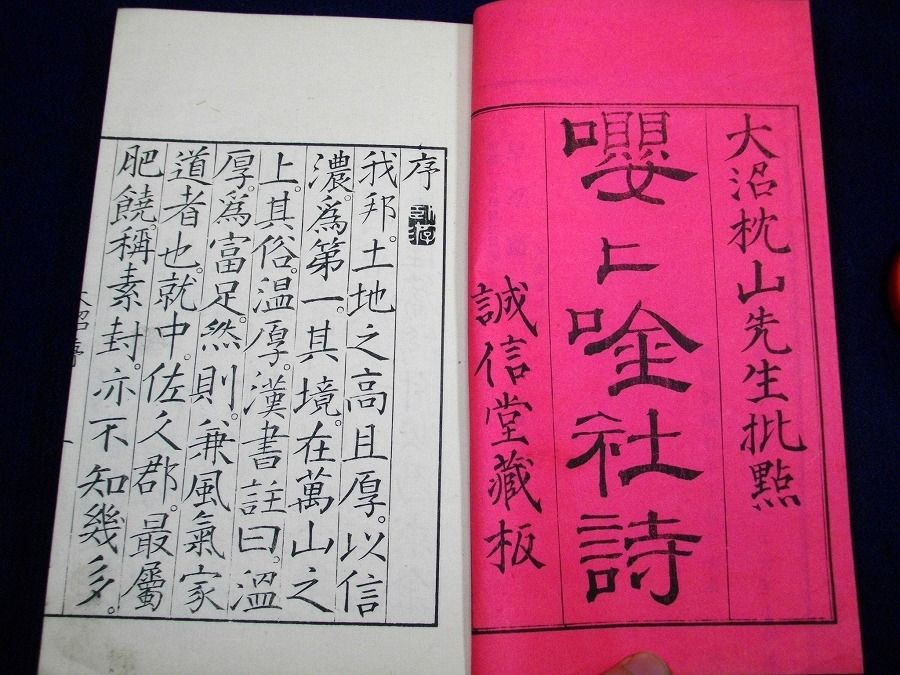 大沼枕山先生批點
嚶上唫社詩
誠信堂藏板
序
我邦。土地之高且厚。以信
濃。爲第一。其境。在萬山之
上。其俗。温厚。漢書註曰。温
厚。爲富足。然則。兼風氣家
道者也。就中。佐久郡。最屬
肥饒。稱素封。亦不知幾多。